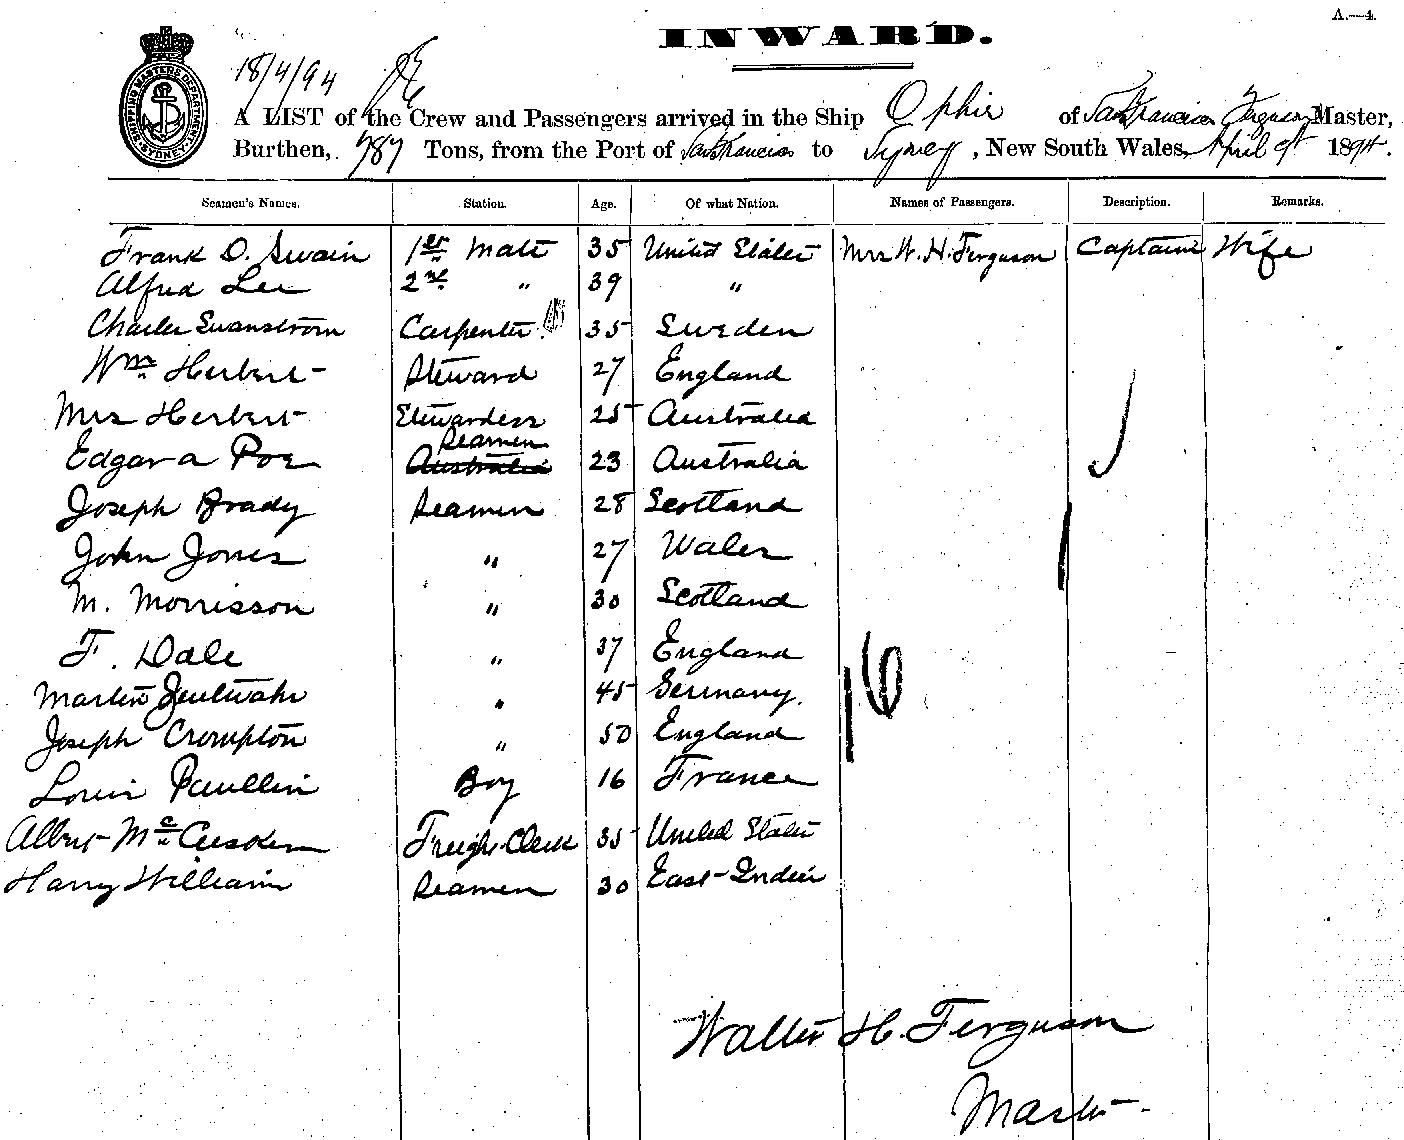 A.—4.
INWARD.
SHIPPING MASTERS DEPARTMENT SYDNEY
18/4/94
A LIST of the Crew and Passengers arrived in the Ship Ophir of San Francisco Ferguson Master,
Burthen, 787 Tons, from the Port of San Francisco to Sydney, New South Wales, April 9th 1894.
Seamen's Names. Station. Age. Of what Nation. Names of Passengers. Description. Remarks.
Frank O. Swain 1st Mate 35 United States Mrs W. H. Ferguson Captains Wife
Alfred Lee 2nd " 39 "
Charles Swanstrom Carpenter 35 Sweden
Wm Herbert Steward 27 England
Mrs Herbert Stewardess 25 Australia
Seamen
Edgar a Poe Australia 23 Australia
Joseph Brady Seamen 28 Scotland
John Jones " 27 Wales
M. Morrisson " 30 Scotland
F. Dale " 37 England
16
Martin " 45 Germany.
Joseph Crompton " 50 England
Louis Paullin Boy 16 France
Albert McCusker Freight Clerk 35 United States
Harry William Seamen 30 East Indies
Walter H. Ferguson
Master